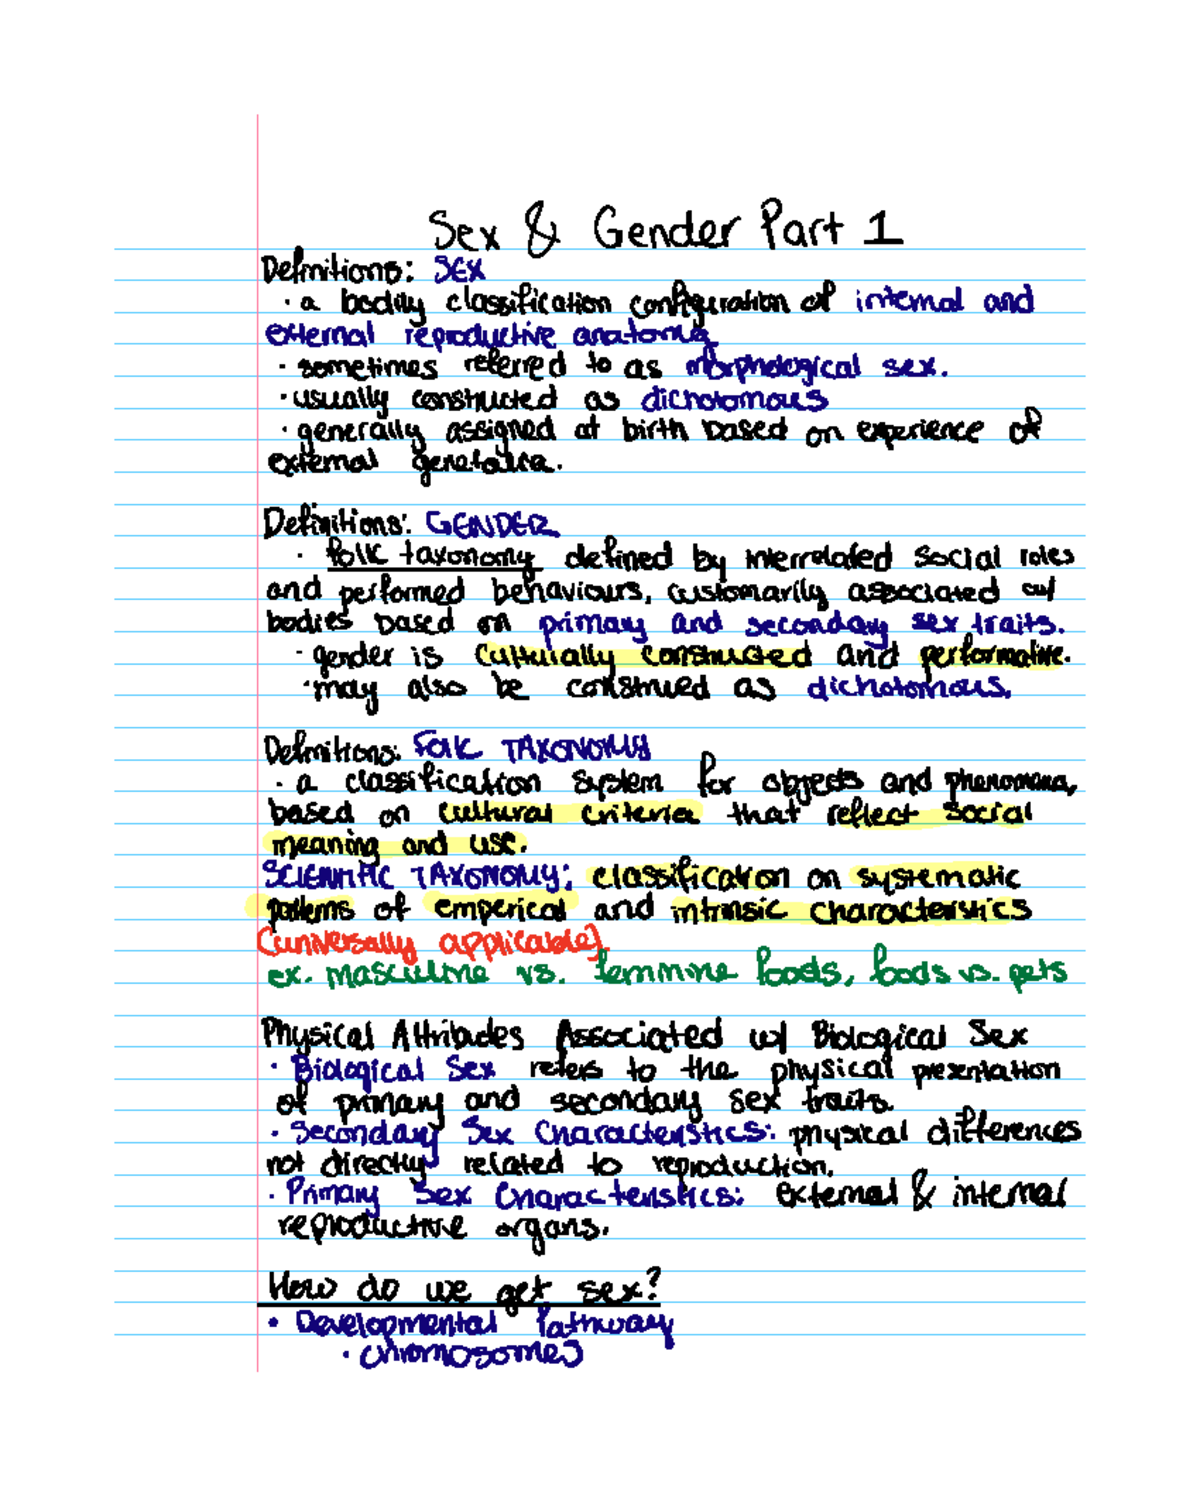 Sex & Gender Part 1
Definitions: SEX
· a bodily classification configuration of internal and
external reproductive anatomy
· sometimes referred to as morphological sex.
· usually constructed as dichotomous
· generally assigned at birth based on experience of
external genetalia.
Definitions: GENDER
· folk taxonomy defined by interrelated social roles
and performed behaviours, customarily associated w/
bodies based on primary and secondary sex traits.
· gender is culturally constructed and performative.
· may also be construed as dichotomous.
Definitions: FOLK TAXONOMY
· a classification system for objects and phenomena,
based on cultural criteria that reflect social
meaning and use.
SCIENTIFIC TAXONOMY: classification on systematic
patterns of emperical and intrinsic characteristics
(universally applicable)
ex. masculine vs. feminine foods, foods vs. pets
Physical Attributes Associated w/ Biological Sex
· Biological Sex refers to the physical presentation
of primary and secondary sex traits.
· Secondary Sex Characteristics: physical differences
not directly related to reproduction.
· Primary Sex Characteristics: external & internal
reproductive organs.
How do we get sex?
• Developmental Pathway
· chromosomes